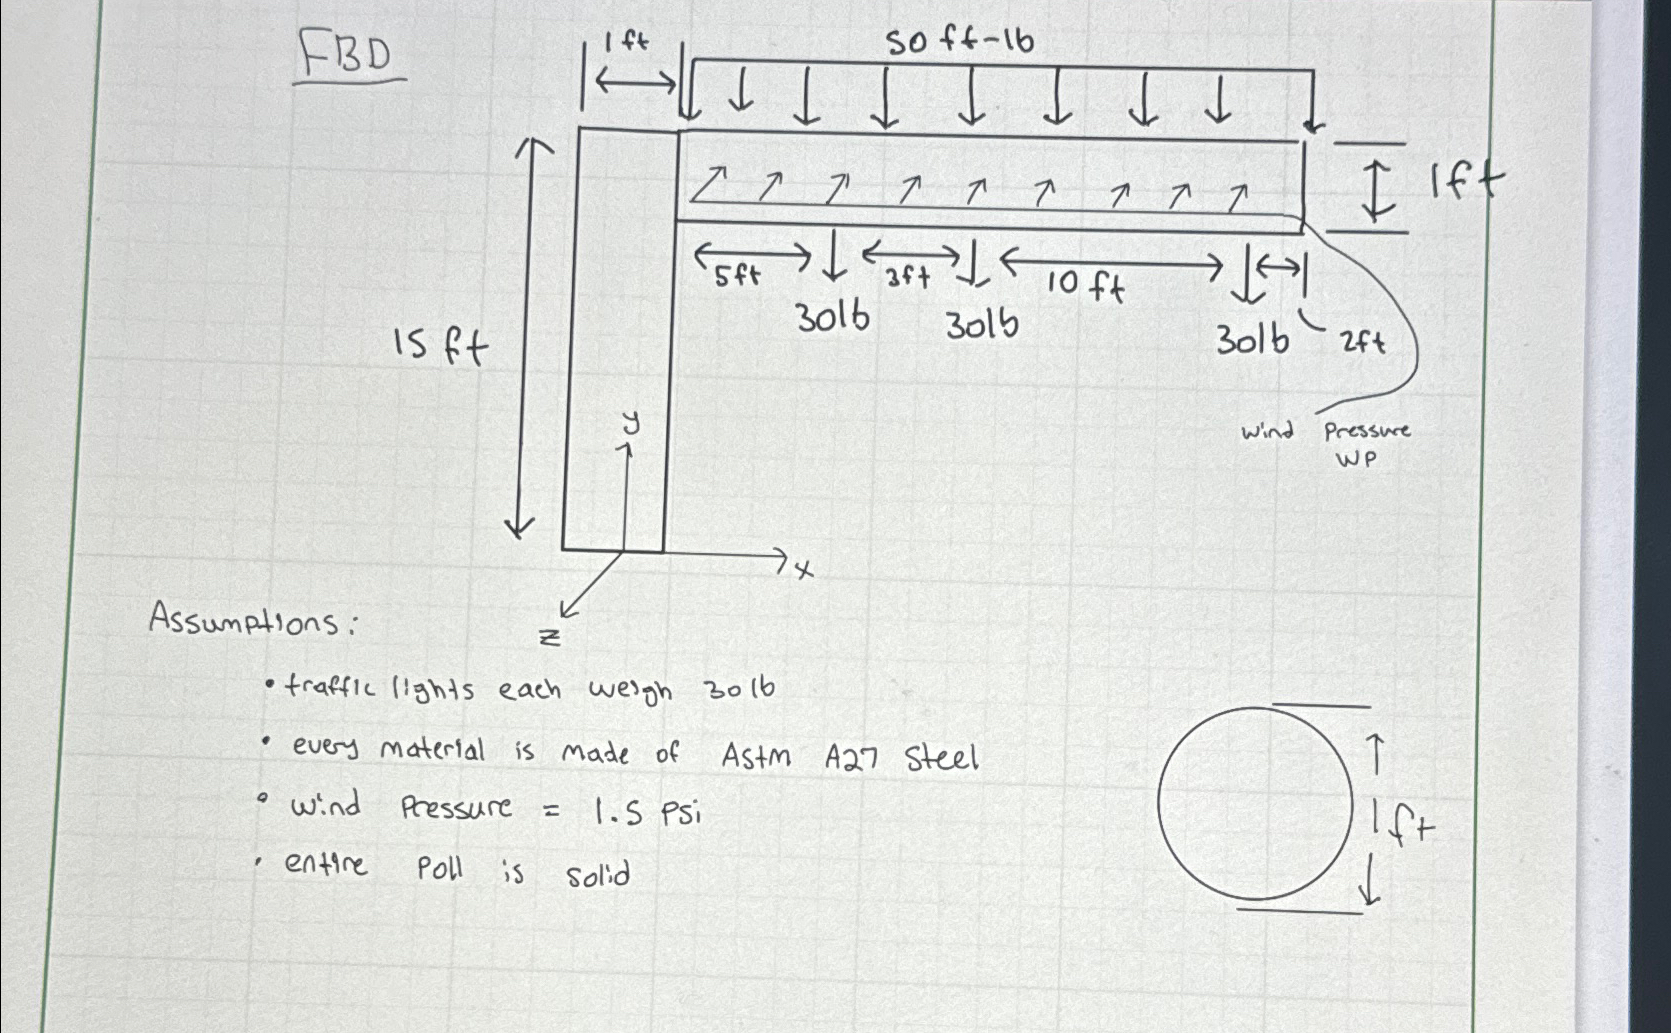 FBD
1 ft
50 ft-lb
1ft
5ft
3ft
10 ft
30lb
30lb
30lb
2ft
15 ft
wind pressure
WP
y
x
z
Assumptions:
• traffic lights each weigh 30 lb
• every material is made of Astm A27 Steel
• wind pressure = 1.5 psi
• entire poll is solid
1ft